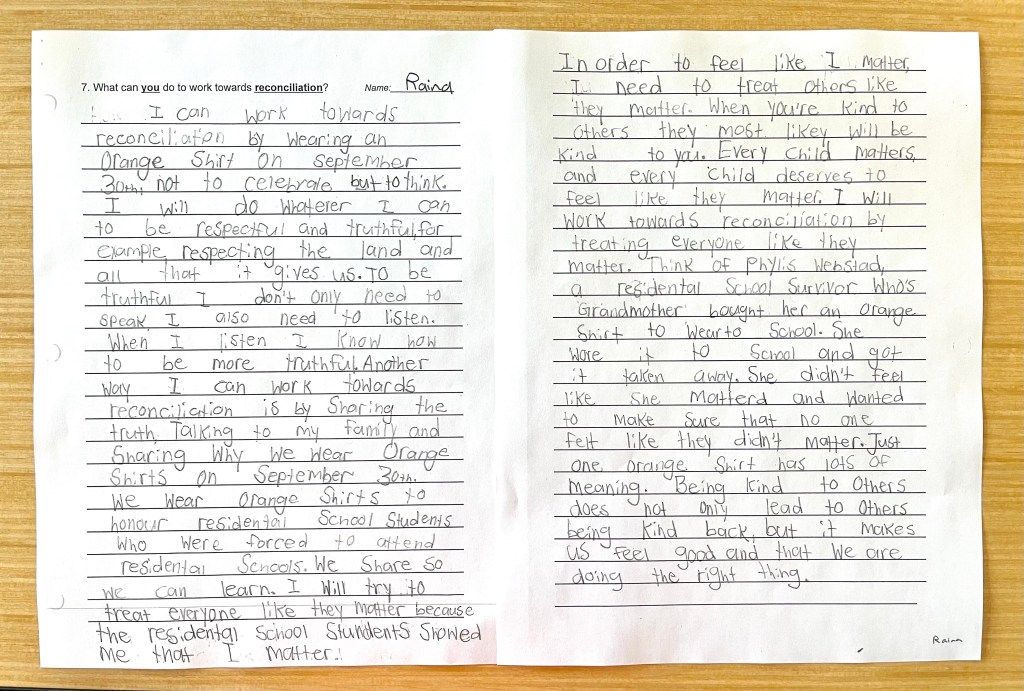 7. What can you do to work towards reconciliation? Name: Raina
I can work towards
reconciliation by wearing an
Orange Shirt on September
30th, not to celebrate but to think.
I will do whatever I can
to be respectful and truthful, for
example, respecting the land and
all that it gives us. To be
truthful I don't only need to
speak, I also need to listen.
When I listen I know how
to be more truthful. Another
way I can work towards
reconciliation is by Sharing the
truth, Talking to my family and
Sharing why we wear Orange
Shirts on September 30th.
We wear Orange Shirts to
honour residental School Students
who were forced to attend
residental Schools. We Share so
we can learn. I will try to
treat everyone like they matter because
the residental School Stundents Showed
me that I matter.
In order to feel like I matter,
I need to treat others like
they matter. When you're kind to
others they most likey will be
kind to you. Every Child matters,
and every Child deserves to
feel like they matter. I will
work towards reconciliation by
treating everyone like they
matter. Think of Phylis Webstad,
a residental School Survivor Who's
Grandmother bought her an Orange
Shirt to wear to School. She
wore it to School and got
it taken away. She didn't feel
like She Matterd and wanted
to make Sure that no one
felt like they didn't matter. Just
one orange Shirt has lots of
meaning. Being kind to others
does not only lead to others
being kind back, but it makes
us feel good and that we are
doing the right thing.
Raina